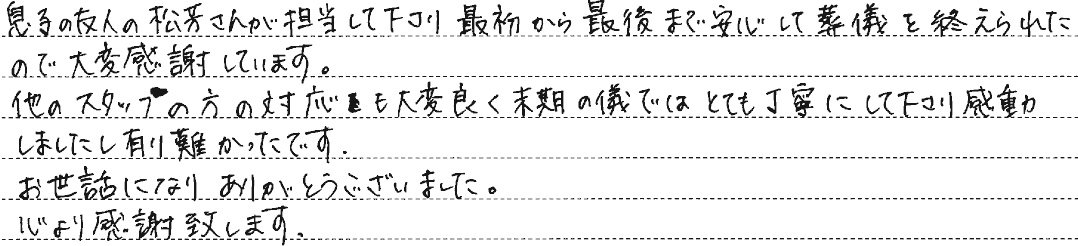 息子の友人の松芳さんが担当して下さり 最初から最後まで安心して葬儀を終えられた
ので大変感謝しています。
他のスタッフの方の対応も大変良く末期の儀ではとても丁寧にして下さり感動
しましたし有り難かったです.
お世話になりありがとうございました。
心より感謝致します.